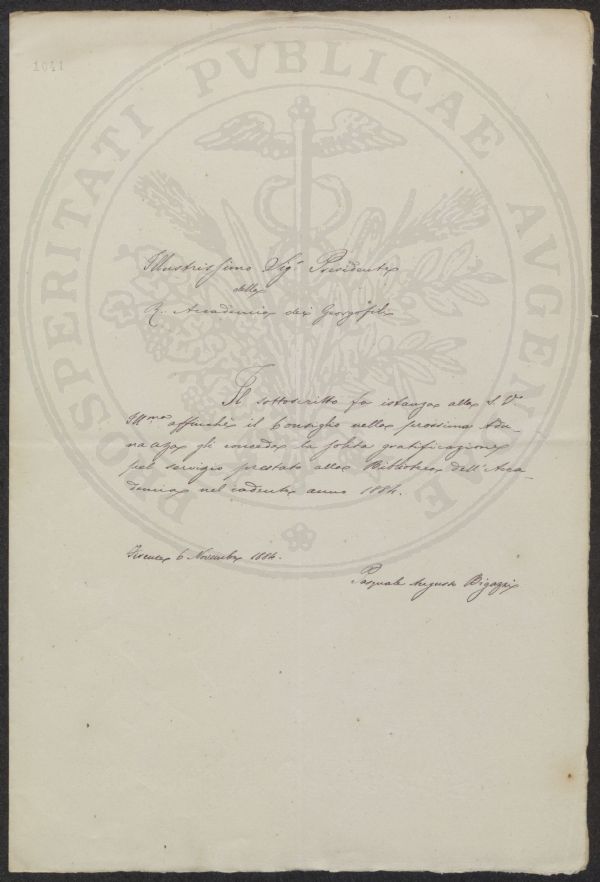 1041
PROSPERITATI PVBLICAE AVGENDAE
Illustrissimo Sig.r Presidente
della
R. Accademia dei Georgofili
Il sottoscritto fa istanza alla S. V.
Ill.ma affinchè il Consiglio nella prossima Adu-
nanza gli conceda la solita gratificazione
pel servigio prestato alla Biblioteca dell'Acca-
demia nel cadente anno 1884.
Firenze 6 Novembre 1884.
Pasquale Augusto Bigazzi